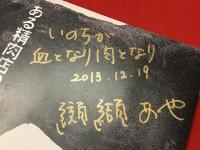 ある精肉店
いのちが
血となり肉となり
2013.12.19
纐纈 あや